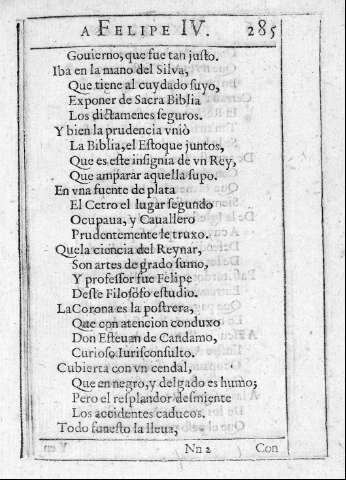 A FELIPE IV. 285
Gouierno, que fue tan justo.
Iba en la mano del Silva,
Que tiene al cuydado suyo,
Exponer de Sacra Biblia
Los dictamenes seguros.
Y bien la prudencia vniò
La Biblia, el Estoque juntos,
Que es este insignia de vn Rey,
Que amparar aquella supo.
En vna fuente de plata
El Cetro el lugar segundo
Ocupaua, y Cauallero
Prudentemente le truxo.
Que la ciencia del Reynar,
Son artes de grado sumo,
Y professor fue Felipe
Deste Filosofo estudio.
La Corona es la postrera,
Que con atencion conduxo
Don Esteuan de Candamo,
Curioso Iurisconsulto.
Cubierta con vn cendal,
Que en negro, y delgado es humo;
Pero el resplandor desmiente
Los accidentes caducos.
Todo funesto la lleua,
Nn 2 Con